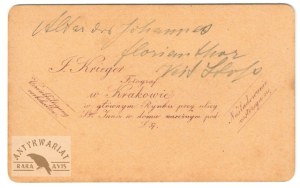 Altar des Johannes
Florianthor
Veit Stoß
I. Krieger
Fotograf
w Krakowie
w głównym Rynku przy ulicy
Śt. Jana w domu narożnym pod
ANTYKWARIAT
RARA AVIS